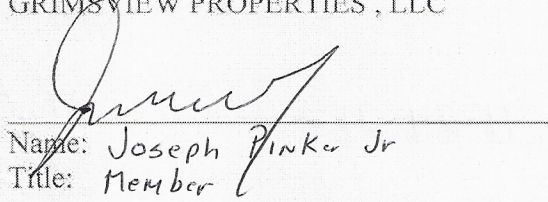 GRIMSVIEW PROPERTIES , LLC
Name: Joseph Pinker Jr
Title: Member